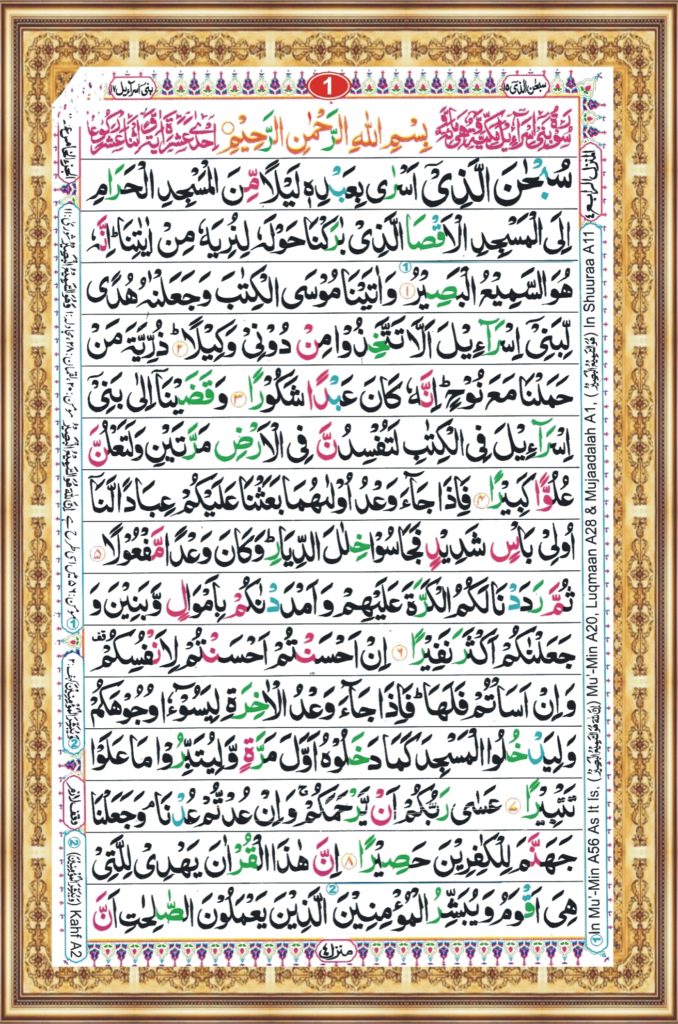 سبحٰن الذی ۱۵
1
بنی اسرآءیل ۱۷
بِسْمِ اللهِ الرَّحْمٰنِ الرَّحِیْمِ
سُبْحٰنَ الَّذِیْۤ اَسْرٰی بِعَبْدِهٖ لَیْلًا مِّنَ الْمَسْجِدِ الْحَرَامِ
اِلَی الْمَسْجِدِ الْاَقْصَا الَّذِیْ بٰرَكْنَا حَوْلَهٗ لِنُرِیَهٗ مِنْ اٰیٰتِنَا ؕ اِنَّهٗ
هُوَ السَّمِیْعُ الْبَصِیْرُ ۱ وَاٰتَیْنَا مُوْسَی الْكِتٰبَ وَجَعَلْنٰهُ هُدًی
لِّبَنِیْۤ اِسْرَآءِیْلَ اَلَّا تَتَّخِذُوْا مِنْ دُوْنِیْ وَكِیْلًا ؕ ۲ ذُرِّیَّةَ مَنْ
حَمَلْنَا مَعَ نُوْحٍ ؕ اِنَّهٗ كَانَ عَبْدًا شَكُوْرًا ۳ وَقَضَیْنَاۤ اِلٰی بَنِیْۤ
اِسْرَآءِیْلَ فِی الْكِتٰبِ لَتُفْسِدُنَّ فِی الْاَرْضِ مَرَّتَیْنِ وَلَتَعْلُنَّ
عُلُوًّا كَبِیْرًا ۴ فَاِذَا جَآءَ وَعْدُ اُوْلٰىهُمَا بَعَثْنَا عَلَیْكُمْ عِبَادًا لَّنَاۤ
اُولِیْ بَاْسٍ شَدِیْدٍ فَجَاسُوْا خِلٰلَ الدِّیَارِ ؕ وَكَانَ وَعْدًا مَّفْعُوْلًا ۵
ثُمَّ رَدَدْنَا لَكُمُ الْكَرَّةَ عَلَیْهِمْ وَاَمْدَدْنٰكُمْ بِاَمْوَالٍ وَّبَنِیْنَ وَ
جَعَلْنٰكُمْ اَكْثَرَ نَفِیْرًا ۶ اِنْ اَحْسَنْتُمْ اَحْسَنْتُمْ لِاَنْفُسِكُمْ
وَاِنْ اَسَاْتُمْ فَلَهَا ؕ فَاِذَا جَآءَ وَعْدُ الْاٰخِرَةِ لِیَسُوْٓءٗا وُجُوْهَكُمْ
وَلِیَدْخُلُوا الْمَسْجِدَ كَمَا دَخَلُوْهُ اَوَّلَ مَرَّةٍ وَّلِیُتَبِّرُوْا مَا عَلَوْا
تَتْبِیْرًا ۷ عَسٰی رَبُّكُمْ اَنْ یَّرْحَمَكُمْ ۚ وَاِنْ عُدْتُّمْ عُدْنَا ۘ وَجَعَلْنَا
جَهَنَّمَ لِلْكٰفِرِیْنَ حَصِیْرًا ۸ اِنَّ هٰذَا الْقُرْاٰنَ یَهْدِیْ لِلَّتِیْ
هِیَ اَقْوَمُ وَیُبَشِّرُ الْمُؤْمِنِیْنَ الَّذِیْنَ یَعْمَلُوْنَ الصّٰلِحٰتِ اَنَّ
منزل ۴
المنزل الرابع ۴
① In Mu'-Min A56 As It Is. Mu'-Min A20, Luqmaan A28 & Mujaadalah A1. In Shuuraa A11
② Kahf A2